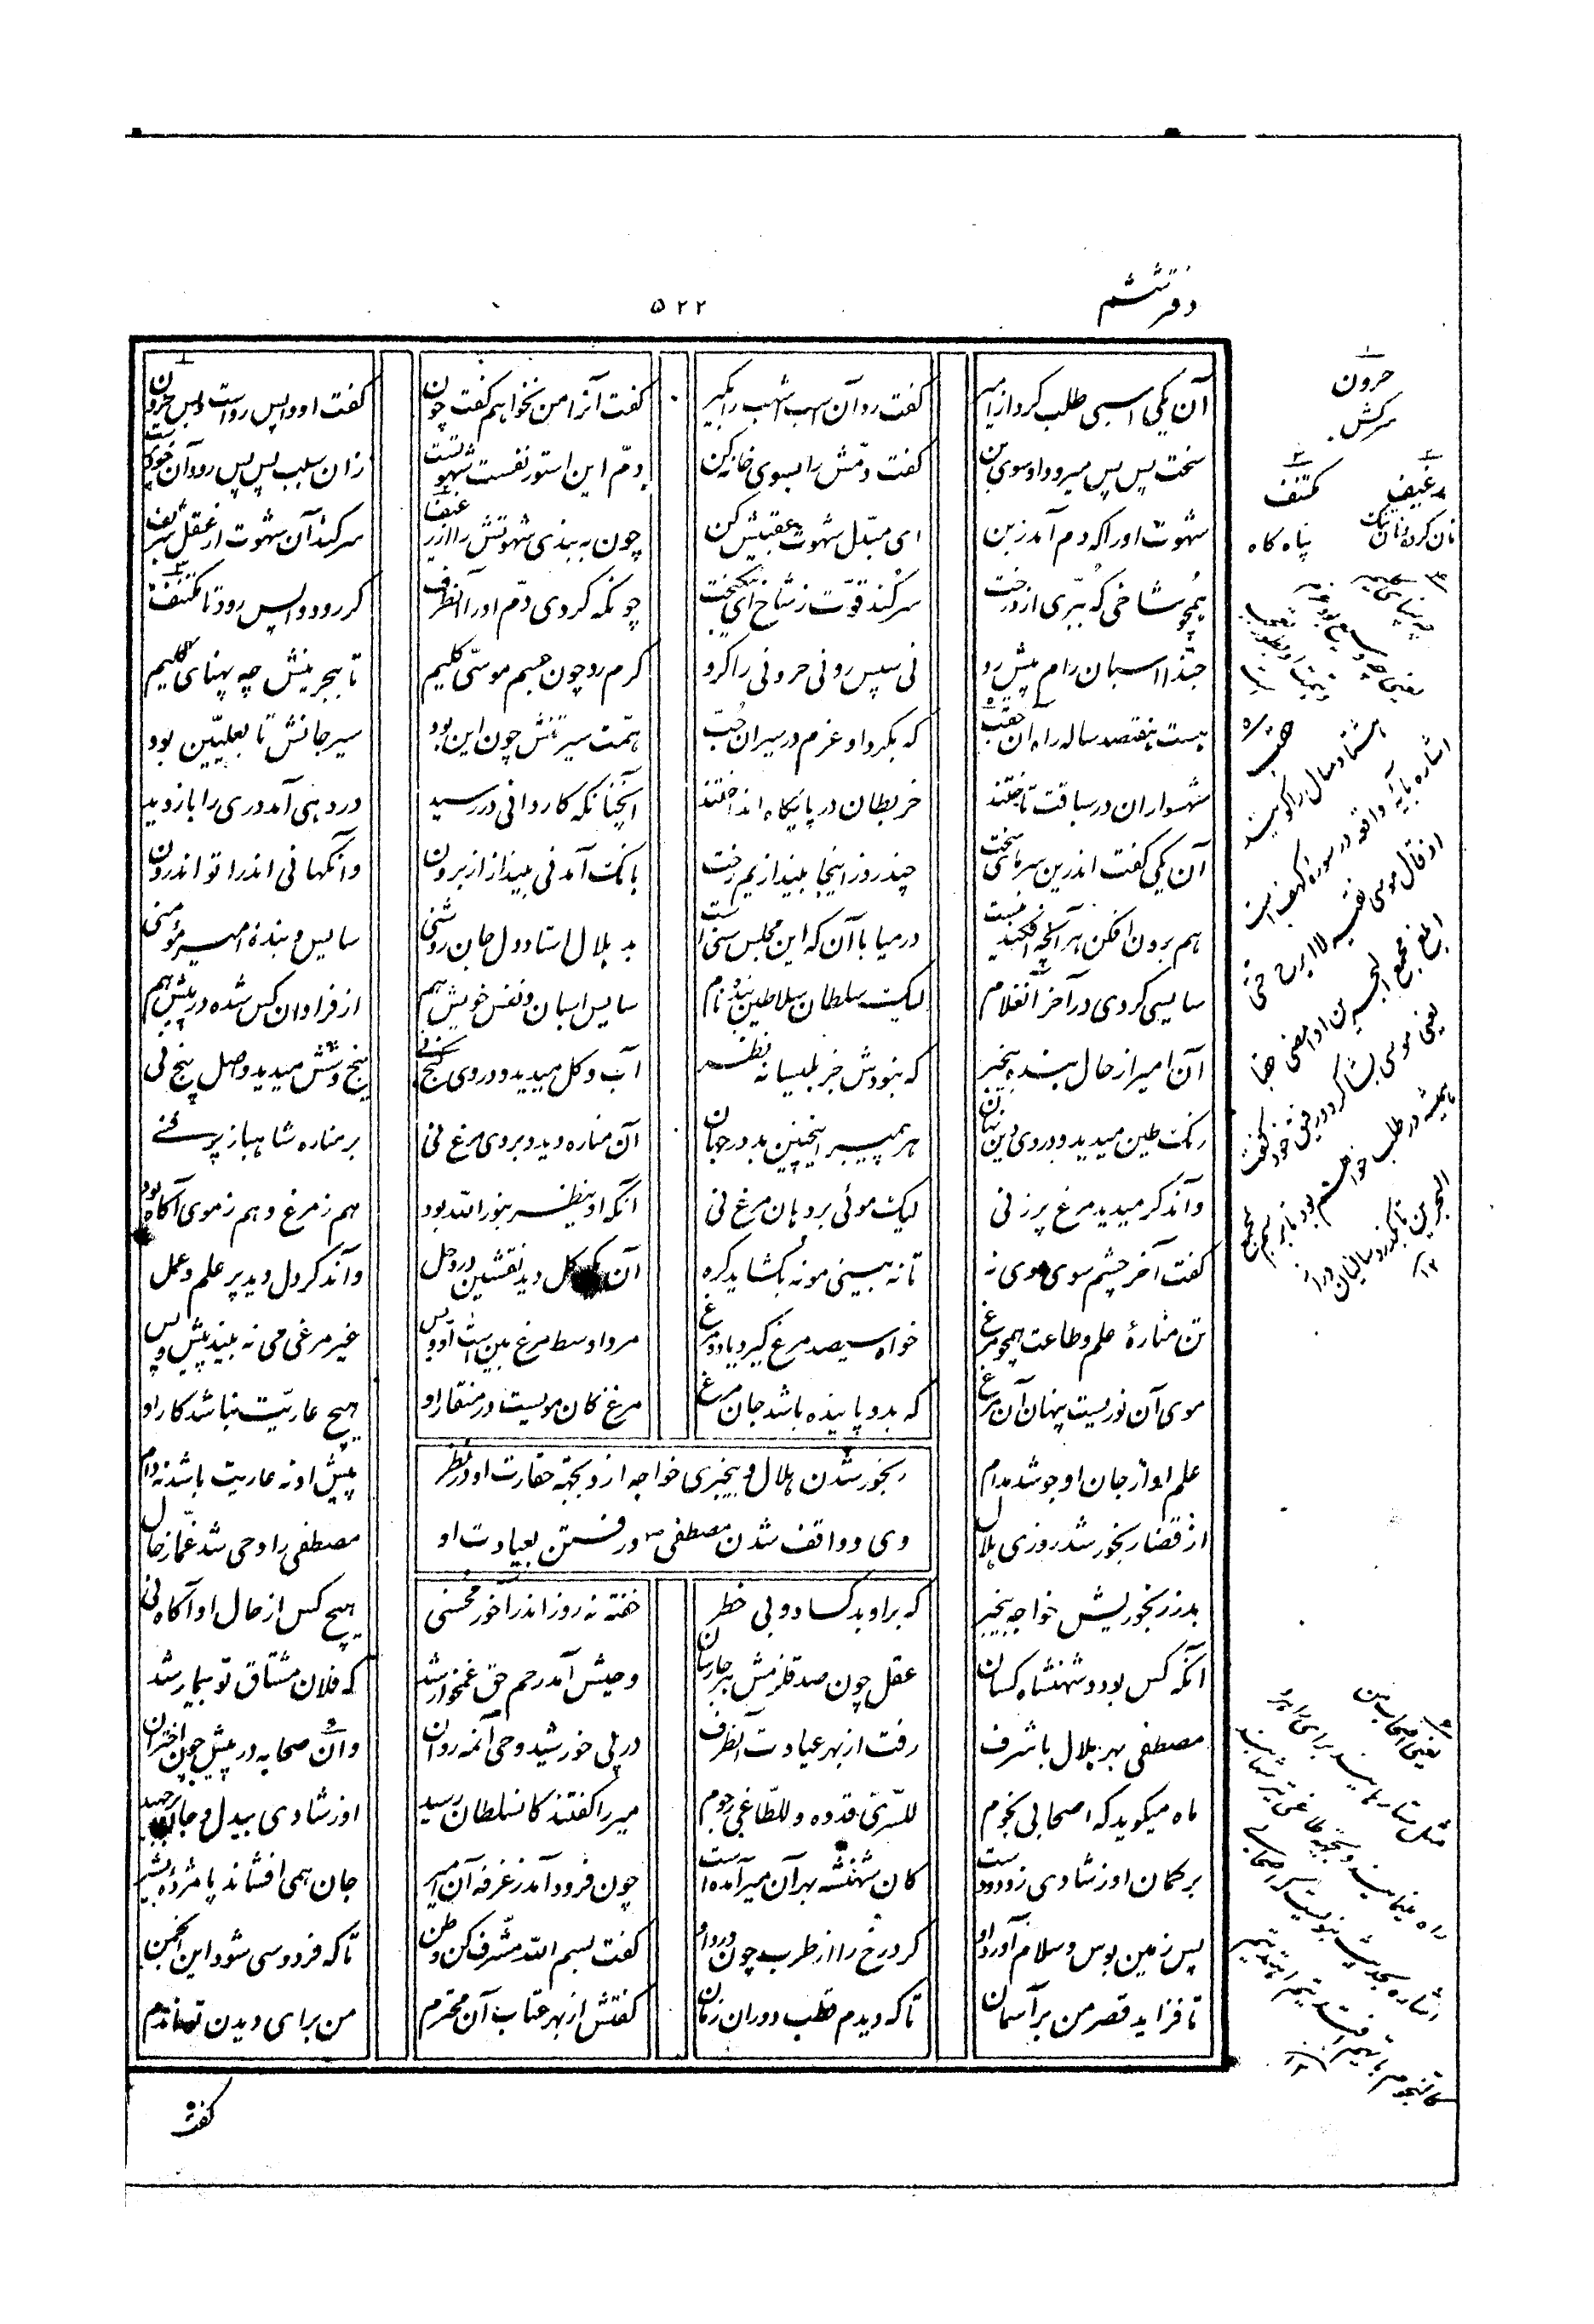 دفتر ششم
۵۲۲
آن یکی اسبی طلب کرد از امیر گفت رو آن اسب اشهب را بگیر گفت آنرا من نخواهم گفت چون گفت او واپس رو است و بس حرون
سخت پس پس میرود او سوی بن گفت دمّش را بسوی خانه کن دمّ این استور نفست شهوتست زان سبب پس پس رود آن خودپرست
شهوت او را که دم آمد ز بن ای مبدّل شهوت عقبیش کن چون به بندی شهوتش را از رغیف سر کند آن شهوت از عقل شریف
همچو شاخی که ببّری از درخت سر کند قوّت ز شاخ ای نیکبخت چونکه کردی دمّ او را آنطرف گر رود واپس رود تا مکتنف
حبّذا اسبان رام پیش رو نی سپس رو نی حرونی را گرو گرم رو چون جسم موسّی کلیم تا ببحرینش چه پهنای گلیم
هست هفتصد ساله راه آن حقب که بکرد او عزم در سیران حُب همّت سیر تنش چون این بود سیر جانش تا بعلیّین بود
شهسواران در سباقت تاختند خربطان در پایگاه انداختند آنچنانکه کاروانی در رسید در دهی آمد دری را باز دید
آن یکی گفت اندرین سرمای سخت چند روز اینجا بیندازیم رخت بانگ آمد نی بینداز از برون وانگهانی اندر آ تو اندرون
هم برون افکن هر آنچه افکندنیست در میا با آن که این مجلس سنی است بد هلال استاد دل جان روشنی سایس و بنده امیر مؤمنی
سایسی کردی در آخر آن غلام لیک سلطان سلاطین بنده نام سایس اسبان و نفس خویش هم از فراوان کس شده در پیش هم
آن امیر از حال بنده بیخبر که نبودش جز بلیسانه نظر آب و گل میدید و در وی گنج نی پنج و شش میدید و اصل پنج نی
رنگ طین میدید و در وی دین نهان هر پیمبر اینچنین بد در جهان آن مناره دید و بر وی مرغ نی بر مناره شاهباز پر فنی
و آن دگر میدید مرغ پر زنی لیک موئی بر دهان مرغ نی آنکه او ینظر بنور الله بود هم ز مرغ و هم ز موی آگاه بود
گفت آخر چشم سوی موی نه تا نه بینی مو نه بگشاید گره آن یکی گل دید نقشین در وحل و آن دگر دل دید پر علم و عمل
تن مناره علم و طاعت همچو مرغ خواه سیصد مرغ گیر و یا دو مرغ مرد اوسط مرغ بین است او و بس غیر مرغی می نه بیند پیش و پس
موی آن نوریست پنهان آن مرغ که بدو پاینده باشد جان مرغ مرغ کان مویست در منقار او هیچ عاریّت نباشد کار او
علم او از جان او جوشد مدام پیش او نه عاریت باشد نه وام
رنجور شدن هلال و بیخبری خواجه از وی بجهة حقارت او در نظر
وی و واقف شدن مصطفی ص و رفتن بعیادت او
از قضا رنجور شد روزی هلال مصطفی را وحی شد غمّاز حال
بد ز رنجوریش خواجه بیخبر که بر او بد کساد و بی خطر خفته نه روز اندر آخر محسنی هیچ کس از حال او آگاه نی
آنکه کس بود و شهنشاه کسان عقل چون صد قلزمش هر جا رسان وحیش آمد رحم حق غمخوار شد که فلان مشتاق تو بیمار شد
مصطفی بهر هلال با شرف رفت از بهر عیادت آنطرف در پی خورشید وحی آن مه روان و آن صحابه در پیش چون اختران
ماه میگوید که اصحابی نجوم للسّری قدوه و للطّاغی رجوم میر را گفتند کان سلطان رسید او ز شادی بیدل و جان بر جهید
بر گمان او ز شادی زد دو دست کان شهنشه بهر آن میر آمده است چون فرود آمد ز غرفه آن امیر جان همی افشاند پا مژده بشیر
پس زمین بوس و سلام آورد او کرد رخ را از طرب چون ورد او گفت بسم الله مشرّف کن وطن تا که فردوسی شود این انجمن
تا فزاید قصر من بر آسمان تا که دیدم قطب دوران زمان گفتش از بهر عتاب آن محترم من برای دیدن تو نامدم
گفت
۱ حرون
سرکش
۲ رغیف
نان گرده نان تنک
۳ مکتنف
پناه گاه
۵ حقب
هشتاد سال را گویند
اشاره بآیهٔ واقعه در سورهٔ کهف است
اذ قال موسی لفتیه لا ابرح حتی
ابلغ مجمع البحرین او امضی حقبا
یعنی موسی بشاگرد و رفیق خود گفت
همیشه در طلب خواهم بود تا برسم بمجمع
البحرین تا بگذرد سالیان دراز
۱۲
یعنی اصحاب من